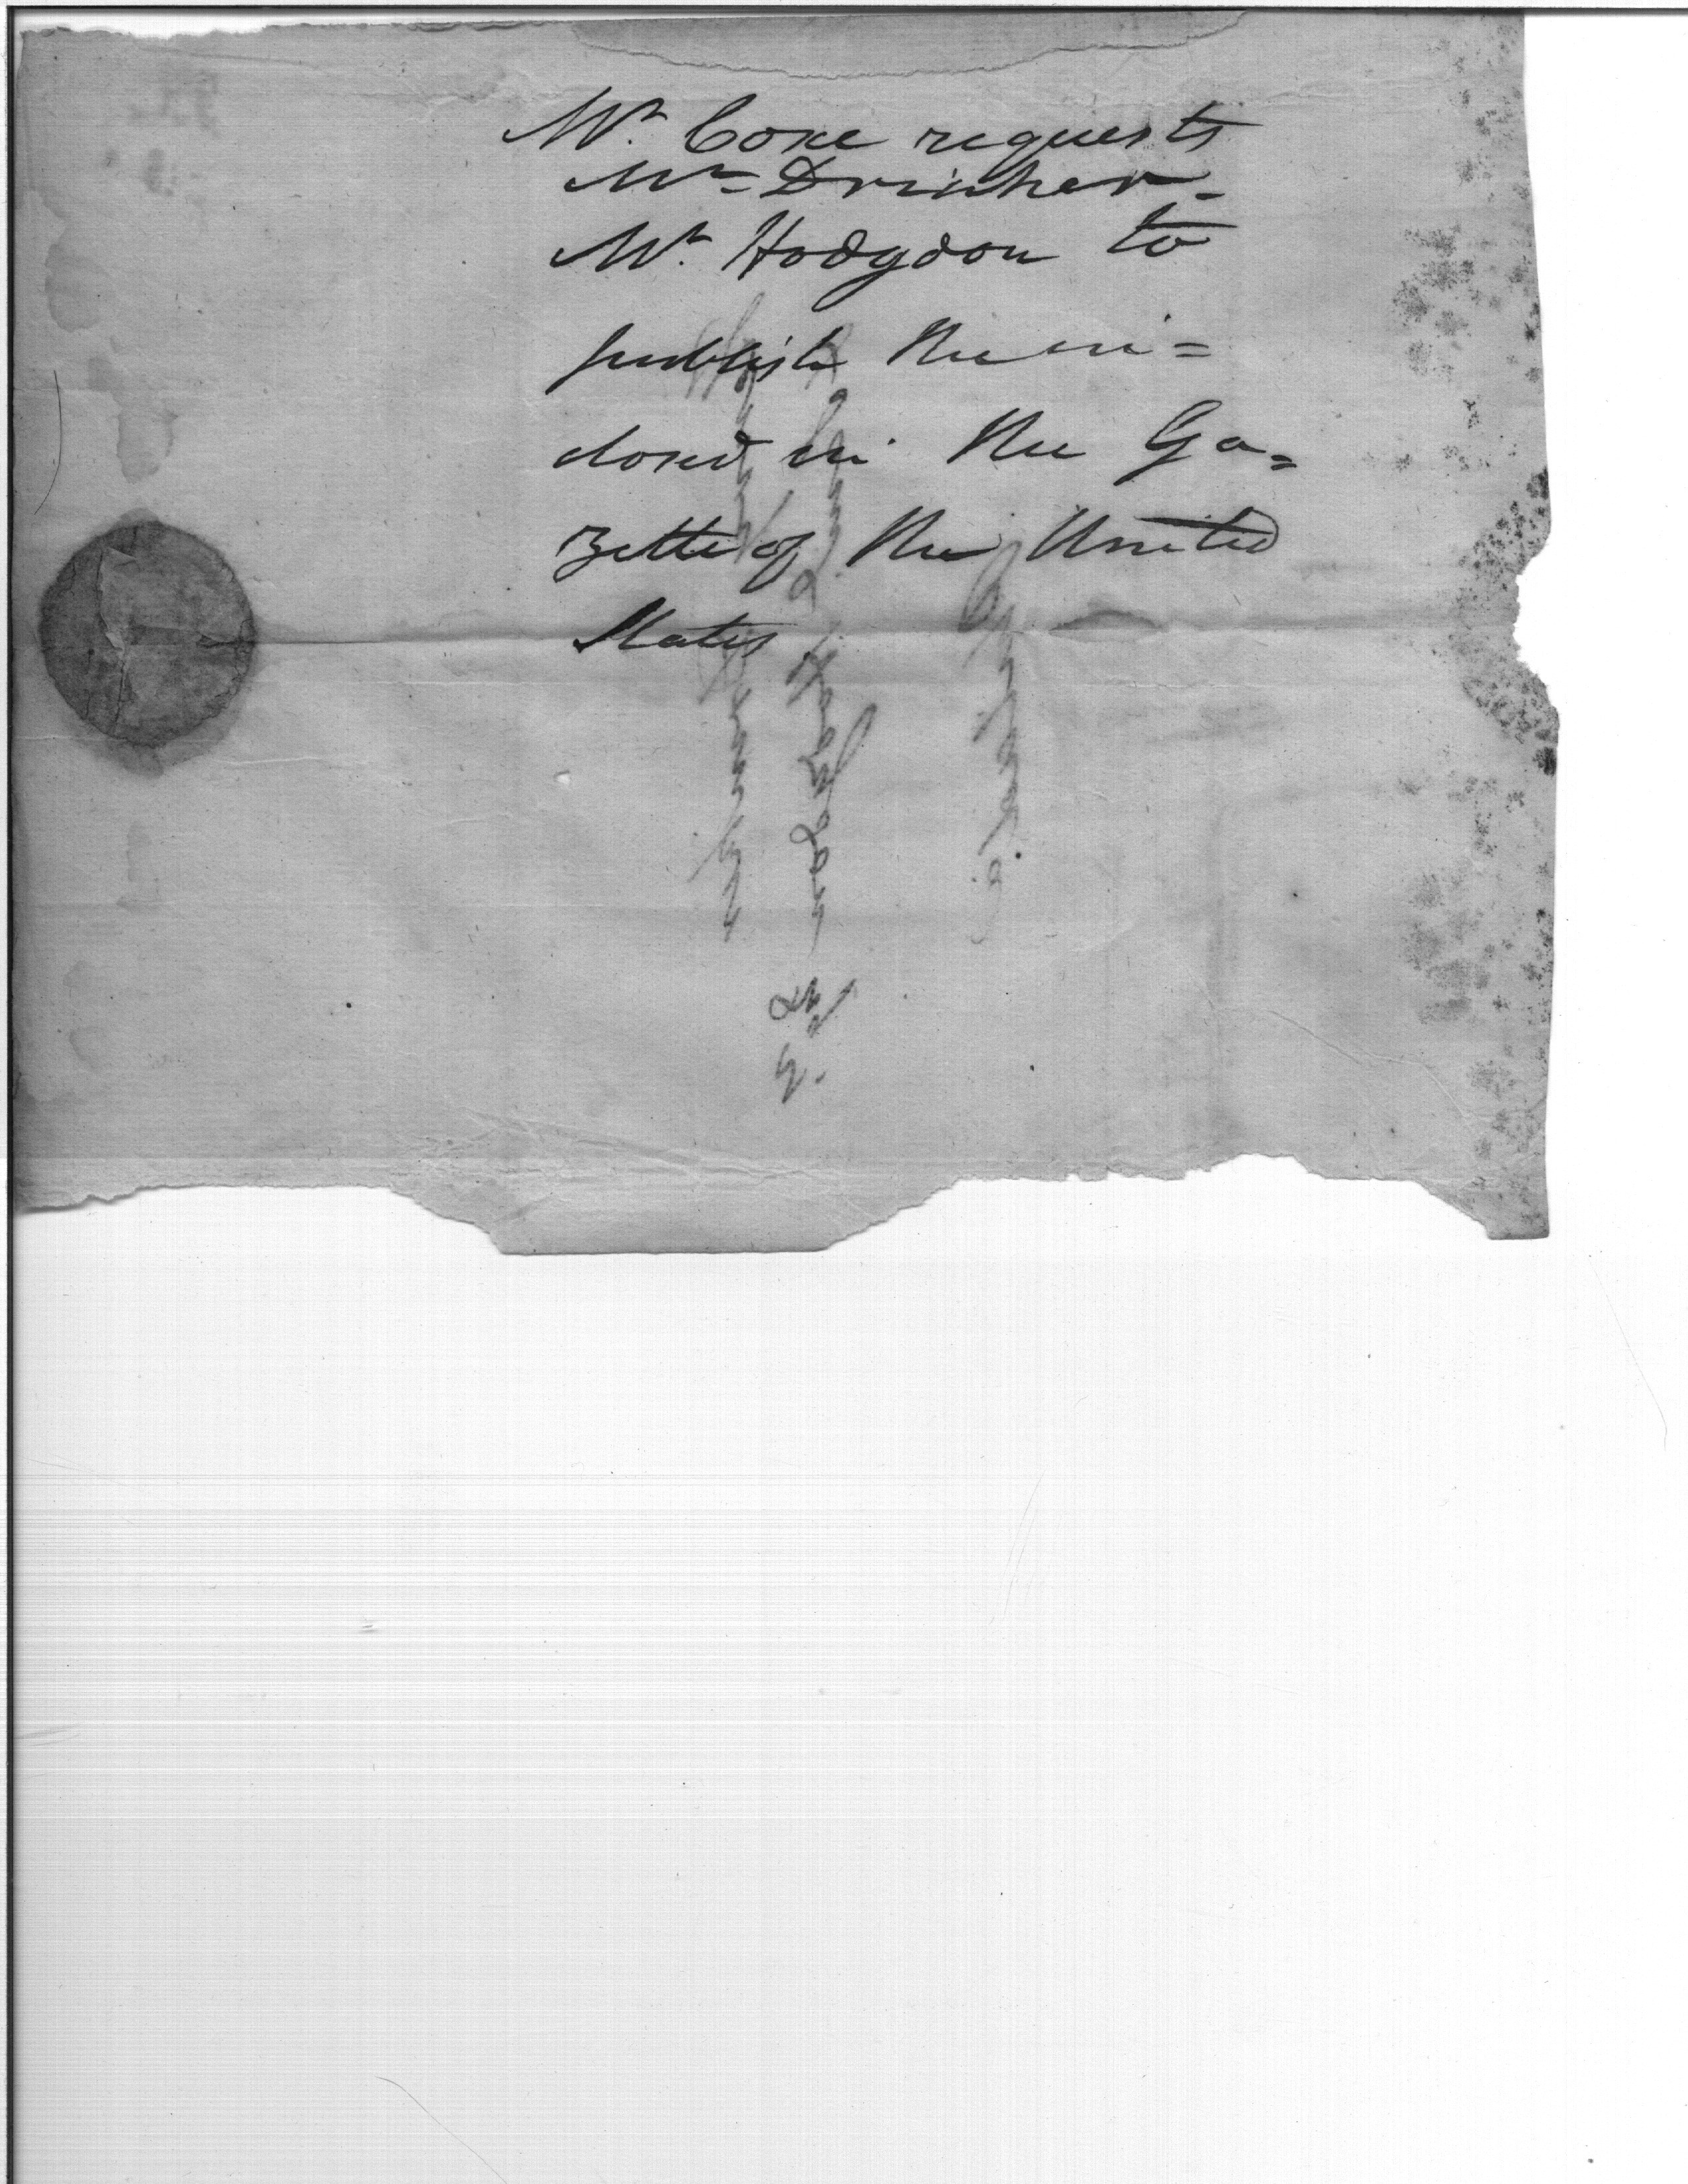 Mr. Coxe requests
Mr Drinker =
Mr. Hodgdon to
publish the in =
closed in the Ga =
zette of the United
States
Samuel Hodgdon Esqr.